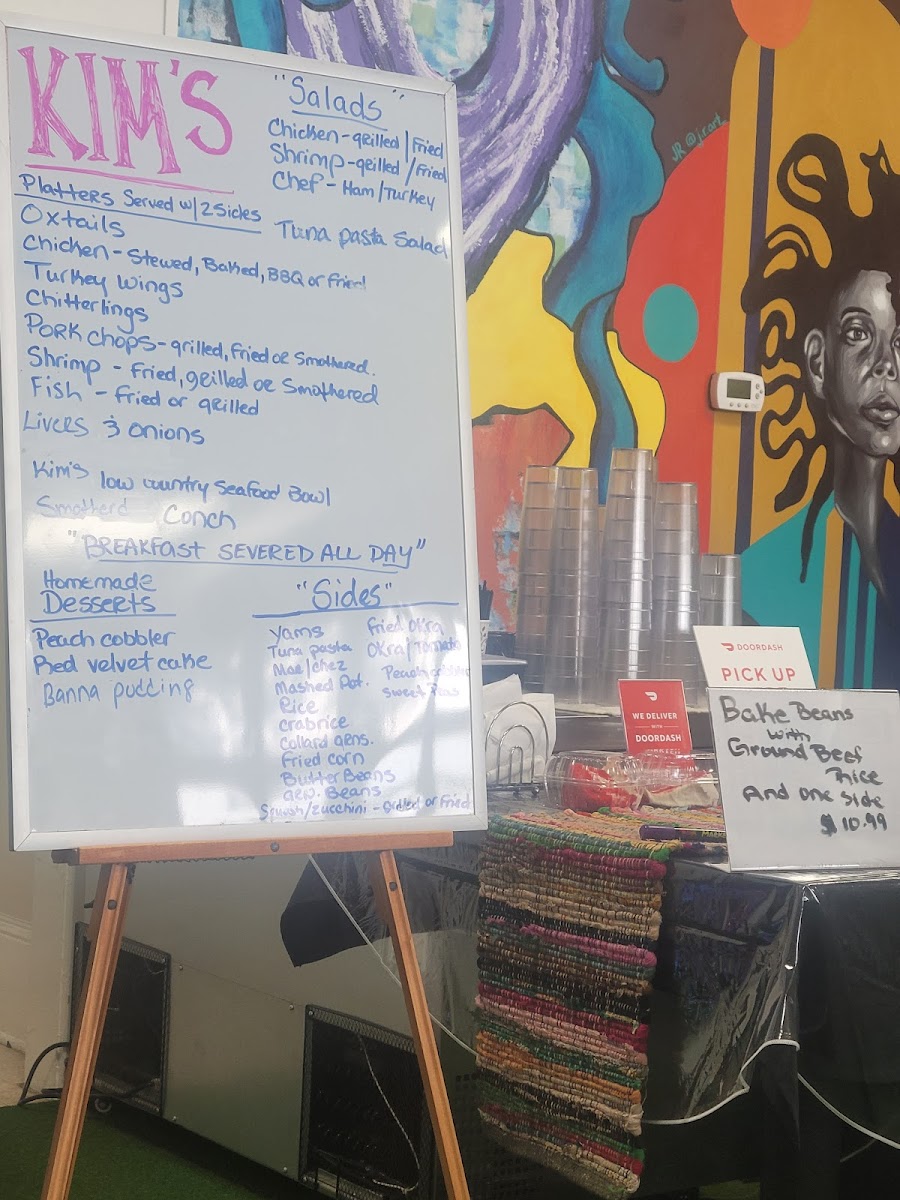 KIM'S
Platters Served w/2 Sides
Oxtails
Chicken - Stewed, Baked, BBQ or Fried
Turkey Wings
Chitterlings
Pork Chops - grilled, Fried or Smothered.
Shrimp - Fried, grilled or Smothered
Fish - Fried or grilled
Livers & Onions
Kim's low country Seafood Bowl
Smotherd Conch
"Salads"
Chicken - grilled / Fried
Shrimp - grilled / Fried
Chef - Ham / Turkey
Tuna pasta Salad
"BREAKFAST SEVERED ALL DAY"
Homemade
Desserts
Peach cobbler
Red velvet cake
Banna pudding
"Sides"
Yams
Tuna pasta
Mac/chez
Mashed Pot.
Rice
Crabrice
Collard grns.
Fried corn
Butter Beans
grn. Beans
Squash/zucchini - grilled or Fried
Fried Okra
Okra/Tomato
Peach cobbler
Sweet Peas
JR @j.r.art_
DOORDASH
PICK UP
WE DELIVER
WITH
DOORDASH
Bake Beans
with
Ground Beef
Rice
And one side
$10.99